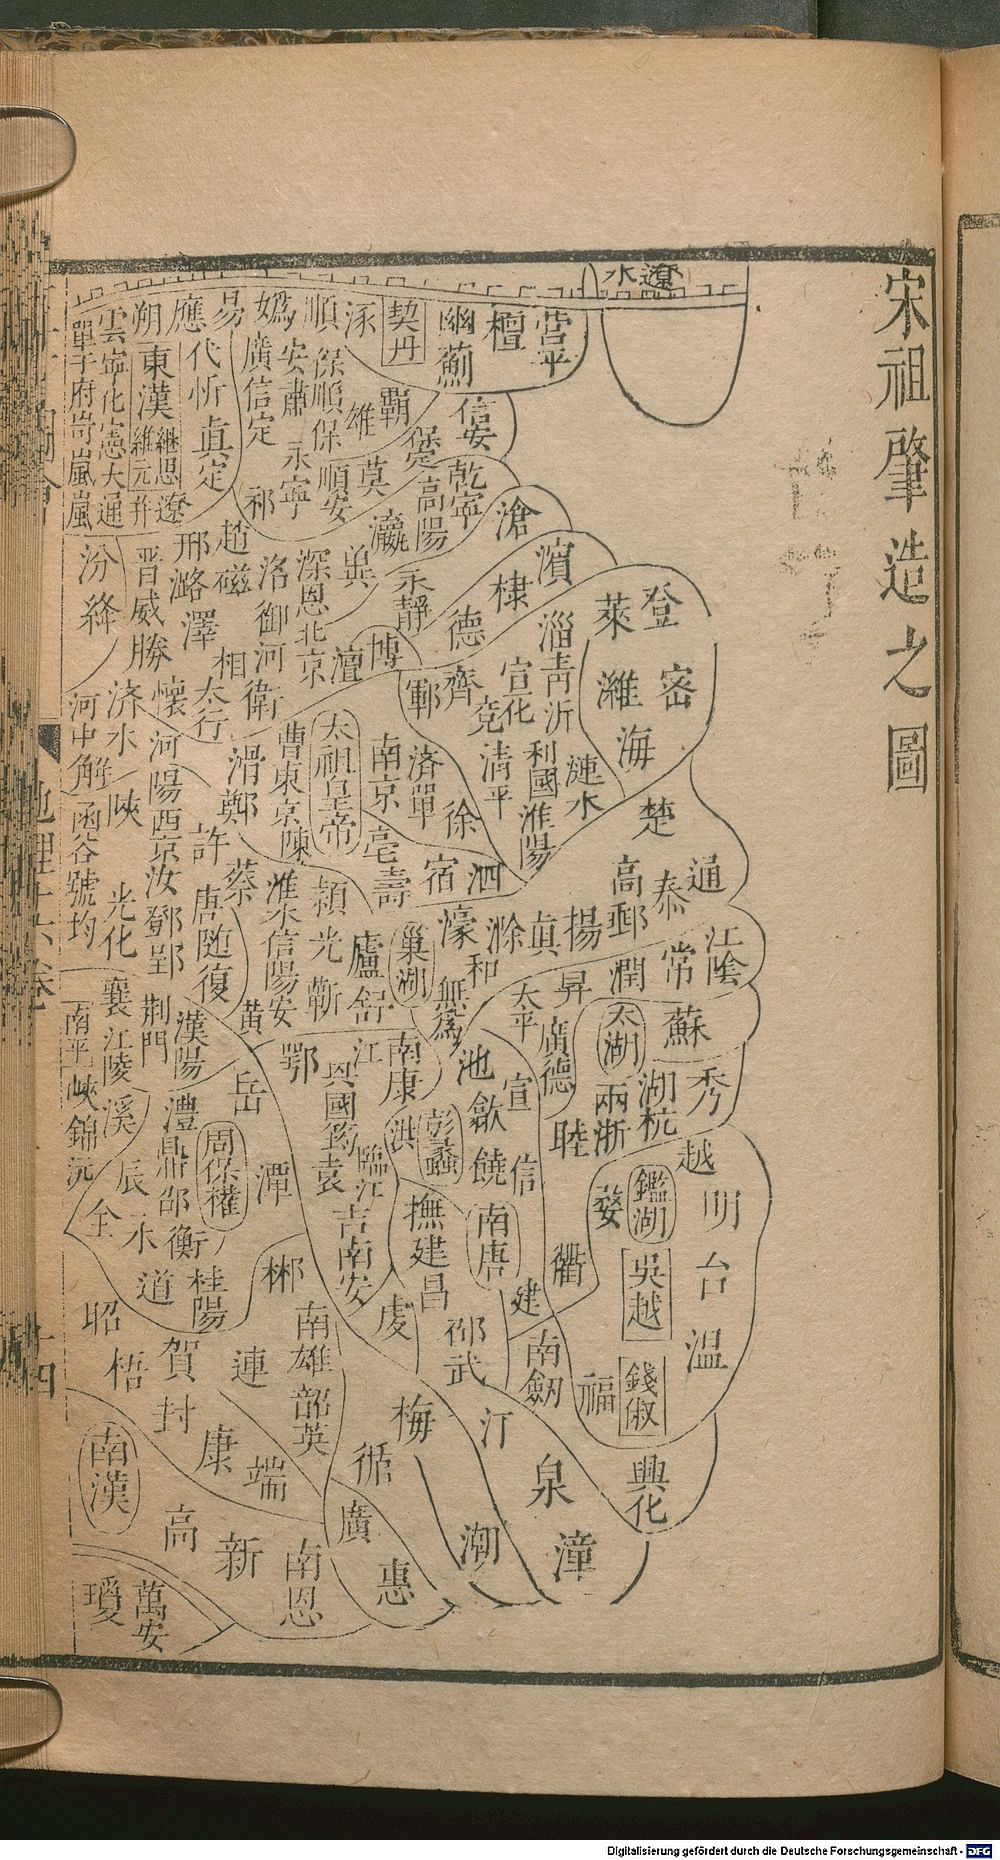 宋祖肇造之圖
遼水
營平
檀
幽薊
契丹
涿
順
媯
易
應
朔
雲
單于府岢嵐嵐
寧化憲大通
東漢
繼恩
維元
并
遼
代忻
真定
廣信定
安肅
保順保
順安
永寧
祁
雄
霸
莫
信安
保定
乾寧
高陽
瀛
滄
濱
棣
德
永靜
冀
深恩北京
洛御河
趙
磁
邢
潞
澤
晉威勝
汾
絳
登
萊
密
濰
海
淄青沂
宣化
齊
鄆
兗
清平
利國
淮陽
漣水
博
澶
衛
相
太行
懷
河陽西京汝鄧郢
濟水
河中解
函谷虢均
陝
光化
滑
鄭
許
曹東京陳
太祖皇帝
南京
亳
壽
濟單
徐
宿
泗
楚
通
泰
高郵
揚
真
滁
濠
和
無爲
巢湖
廬
舒
潁
光
蘄
淮
信陽
安
蔡
唐随復
黃
襄
江陵
荆門
漢陽
南平
峽
錦
沅
溪
辰
全
永
道
澧鼎邵衡
桂陽
周保權
岳
潭
郴
鄂
興國筠袁
江
南康
洪
臨江
吉
南安
彭蠡
池
歙
饒
宣
信
太平
昇
廣德
潤
常
江陰
蘇
太湖
湖
杭
兩浙
睦
秀
越
明
台
温
鑑湖
婺
吳越
錢俶
衢
福
南唐
撫建昌
虔
建
邵武
南劒
汀
泉
漳
興化
梅
潮
循
廣
惠
南雄
韶英
連
賀
封
康
端
昭
梧
南漢
高
新
南恩
瓊
萬安
地理十六卷
十四
Digitalisierung gefördert durch die Deutsche Forschungsgemeinschaft - DFG